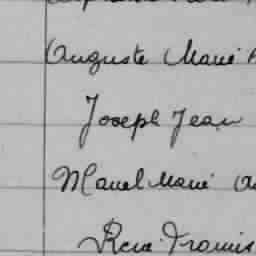 Auguste Marie
Joseph Jean
Marcel Marie
René Francis